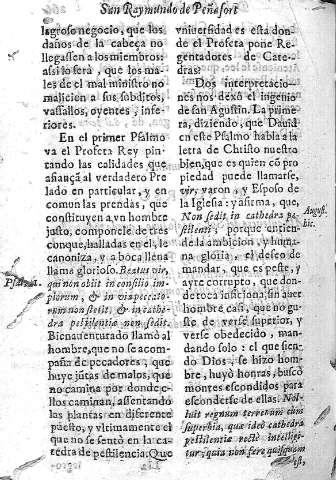 San Raymundo de Peñafort
lagroso negocio, que los
daños de la cabeça no
llegassen a los miembros:
assi lo serà, que los ma-
les de el mal ministro no
malicien a sus subditos,
vassallos, oyentes, infe-
riores.
En el primer Psalmo
va el Profeta Rey pin-
tando las calidades que
afiançã al verdadero Pre
lado en particular, y en
comun las prendas, que
constituyen a vn hombre
justo, componele de tres
conque, halladas en el, le
canoniza, y a boca llena
llama glorioso. Beatus vir,
qui non abiit in consilio im-
piorum, & in via peccato-
rum non stetit, & in cathe-
dra pestilentiæ non sedit.
Bienaventurado llamò al
hombre, que no se acom-
paña de pecadores, que
huye jutas de malos, que
no camina por donde e-
llos caminan, assentando
las plantas en diferente
puesto, y vltimamente el
que no se sentò en la ca-
tedra de pestilencia. Que
Psal. 1.
vniversidad es esta don-
de el Profeta pone Re-
gentadores de Cate-
dras?
Dos interpretacio-
nes nos dexò el ingenio
de san Agustin. La prime
ra, diziendo, que David
en este Psalmo habla a la
letra de Christo nuestro
bien, que es quien cõ pro
piedad puede llamarse,
vir, varon, y Esposo de
la Iglesia: y afirma, que,
Non sedit in cathedra pe-
stilentiæ; porque entien-
de la ambicion, y huma-
na gloria, el deseo de
mandar, que es peste, y
ayre corrupto, que don-
de toca inficiona, sin aver
hombre casi, que no gu-
ste de verse superior, y
verse obedecido, man-
dando solo: el que sien-
do Dios, se hizo hom-
bre, huyò honras, buscò
montes escondidos para
esconderse de ellas. Nol-
luit regnum terrenum cum
superbia, quæ ideò cathedra
pestilentiæ rectè intelligi-
tur, quia non ferè quisquam
est,
August.
hic.